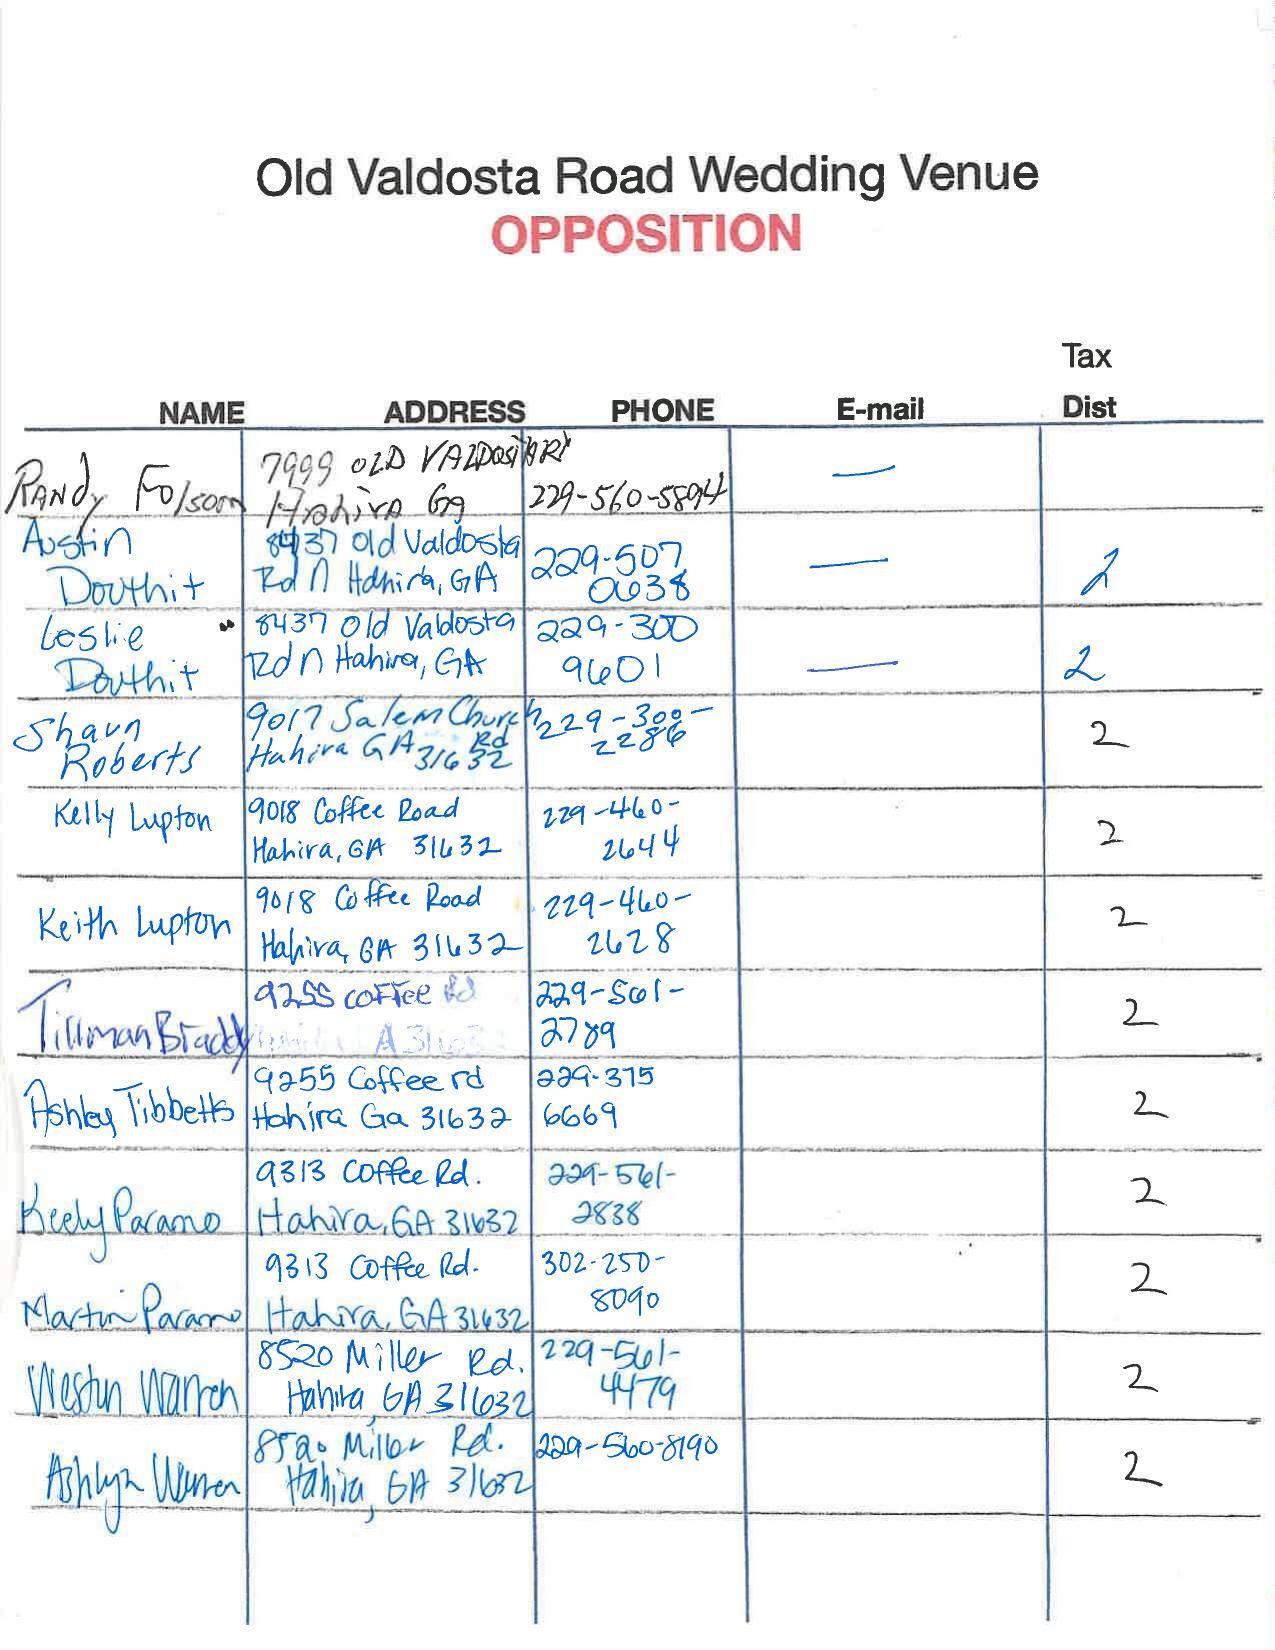 Old Valdosta Road Wedding Venue
OPPOSITION
Tax
NAME ADDRESS PHONE E-mail Dist
Randy Folsom 7999 OLD VALDOSTA Rd
Hahira Ga 229-560-5894 —
Austin 8437 Old Valdosta 229-507
Douthit Rd N Hahira, GA 0638 — 2
Leslie 8437 Old Valdosta 229-300
Douthit Rd N Hahira, GA 9601 — 2
Shaun 9017 Salem Church 229-300-
Roberts Hahira GA 31632 Rd 2286 2
Kelly Lupton 9018 Coffee Road 229-460-
Hahira, GA 31632 2644 2
Keith Lupton 9018 Coffee Road 229-460-
Hahira, GA 31632 2628 2
Tillman Braddy 9255 Coffee Rd 229-561-
A 3163 2789 2
Ashley Tibbetts 9255 Coffee rd 229-375
Hahira Ga 31632 6669 2
Keely Paramo 9313 Coffee Rd. 229-561-
Hahira, GA 31632 2838 2
Martin Paramo 9313 Coffee Rd. 302-250-
Hahira, GA 31632 8090 2
Westun Warren 8520 Miller Rd. 229-561-
Hahira, GA 31632 4479 2
Ashlyn Warren 8520 Miller Rd. 229-560-8190
Hahira, GA 31632 2